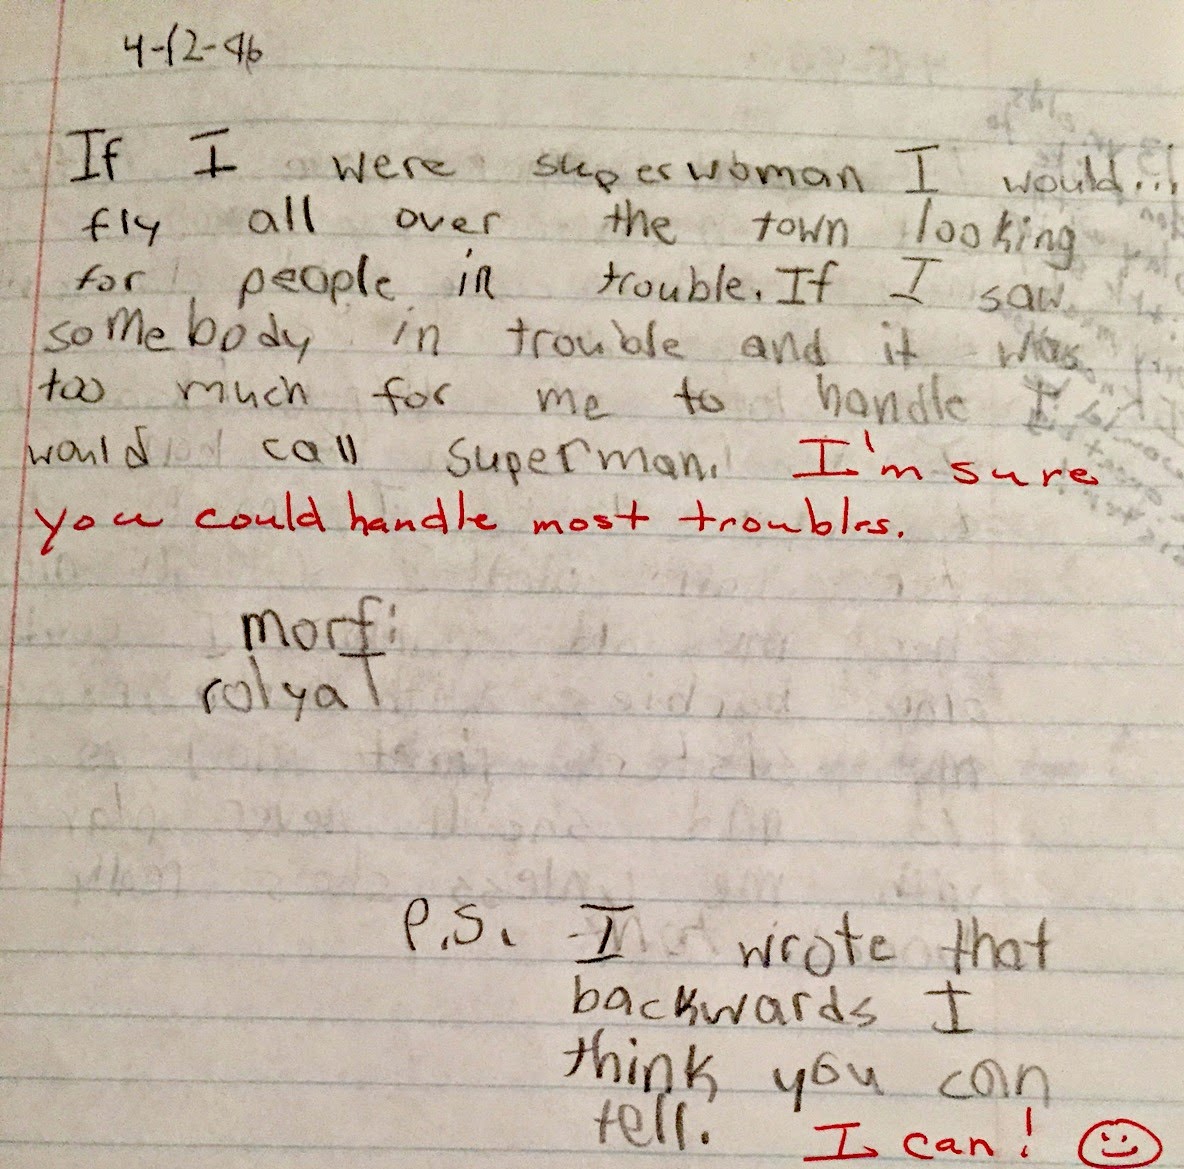 4-12-96
If I were superwoman I would...
fly all over the town looking
for people in trouble. If I saw
somebody in trouble and it was
too much for me to handle I
would call Superman. I'm sure
you could handle most troubles.
morf:
rolyaT
P.S. I wrote that
backwards I
think you can
tell. I can!